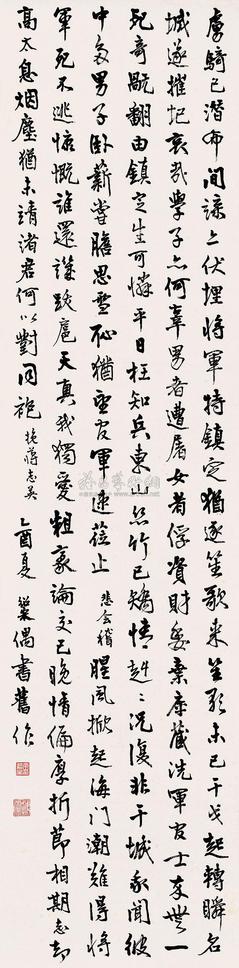 虜騎已潛布間諜上伏埋將軍特鎮定猶逐笙歌來笙歌未已干戈起轉瞬名
城遂摧圮哀哉學子亦何辜男者遭屠女者俘資財委棄庫藏洗軍官士卒無一
死奇駭翻由鎮定生可憐平日枉知兵東山絲竹已矯情赳赳況復非干城我聞彼
中多男子臥薪嘗膽思雪恥猶望官軍速蒞止 悲會稽 腥風掀起海門潮難得將
軍死不逃慷慨誰還誚跋扈天真我獨愛粗豪論交已晚情偏摩折節相期志却
高太息烟塵猶未靖渚君何以對同袍 挽蔣志英 乙酉夏 偶書舊作